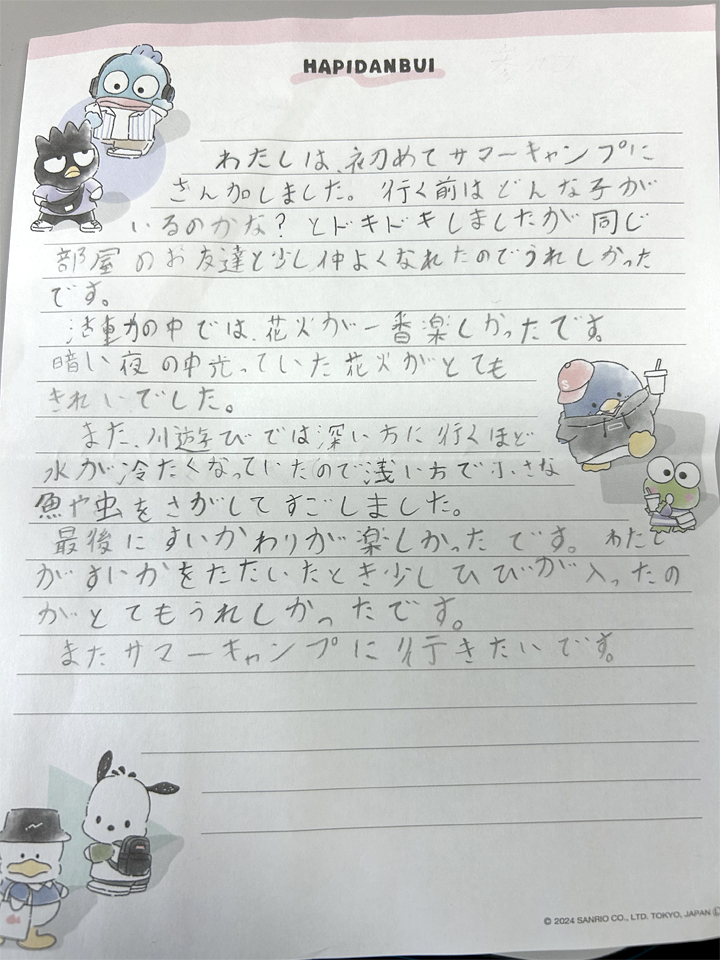 HAPIDANBUI
わたしは、初めてサマーキャンプに
さん加しました。行く前はどんな子が
いるのかな？とドキドキしましたが同じ
部屋のお友達と少し仲よくなれたのでうれしかった
です。
活動の中では、花火が一番楽しかったです。
暗い夜の中光っていた花火がとても
きれいでした。
また、川遊びでは深い方に行くほど
水が冷たくなっていたので浅い方で小さな
魚や虫をさがしてすごしました。
最後にすいかわりが楽しかったです。わたし
がすいかをたたいたとき少しひびが入ったの
がとてもうれしかったです。
またサマーキャンプに行きたいです。
S
© 2024 SANRIO CO., LTD. TOKYO, JAPAN